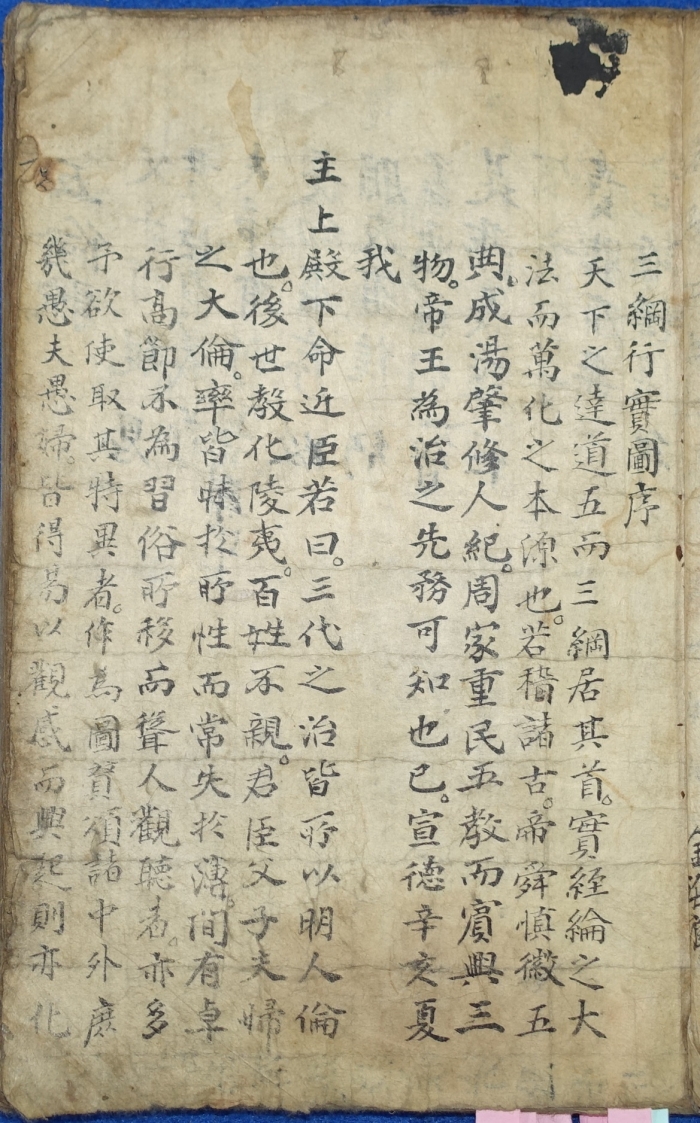 三綱行實圖序
天下之達道五而三綱居其首。實経綸之大
法而萬化之本源也。若稽諸古。帝舜慎徽五
典。成湯肇修人紀。周家重民五教而賓興三
物。帝王為治之先務可知也已。宣德辛亥夏
我
主上殿下命近臣若曰。三代之治皆所以明人倫
也。後世教化陵夷。百姓不親。君臣父子夫婦
之大倫。率皆昧於所性而常失於薄。間有卓
行高節不為習俗所移而聳人觀聽者。亦多
予欲使取其特異者。作為圖賛頌詣中外庶
幾愚夫愚婦。皆得易以觀感而興起則亦化